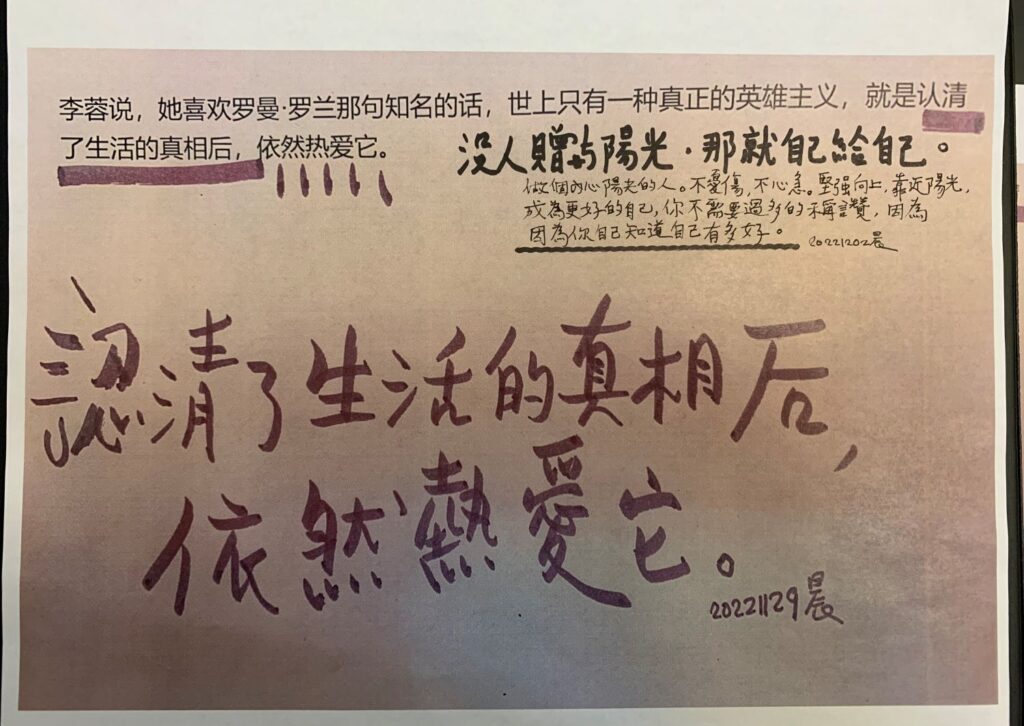 李蓉说，她喜欢罗曼·罗兰那句知名的话，世上只有一种真正的英雄主义，就是认清
了生活的真相后，依然热爱它。
没人贈与陽光·那就自己給自己。
做個內心陽光的人。不憂傷，不心急。堅强向上，靠近陽光，
成為更好的自己，你不需要過多的稱讚，因為
因為你自己知道自己有多好。
20221202晨
認清了生活的真相后，
依然熱愛它。
20221129晨